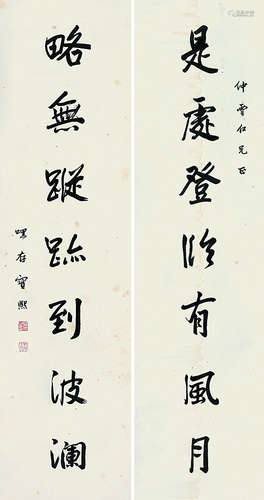 仲雪仁兄正
是處登臨有風月
略無蹤跡到波澜
瞟存寶熙